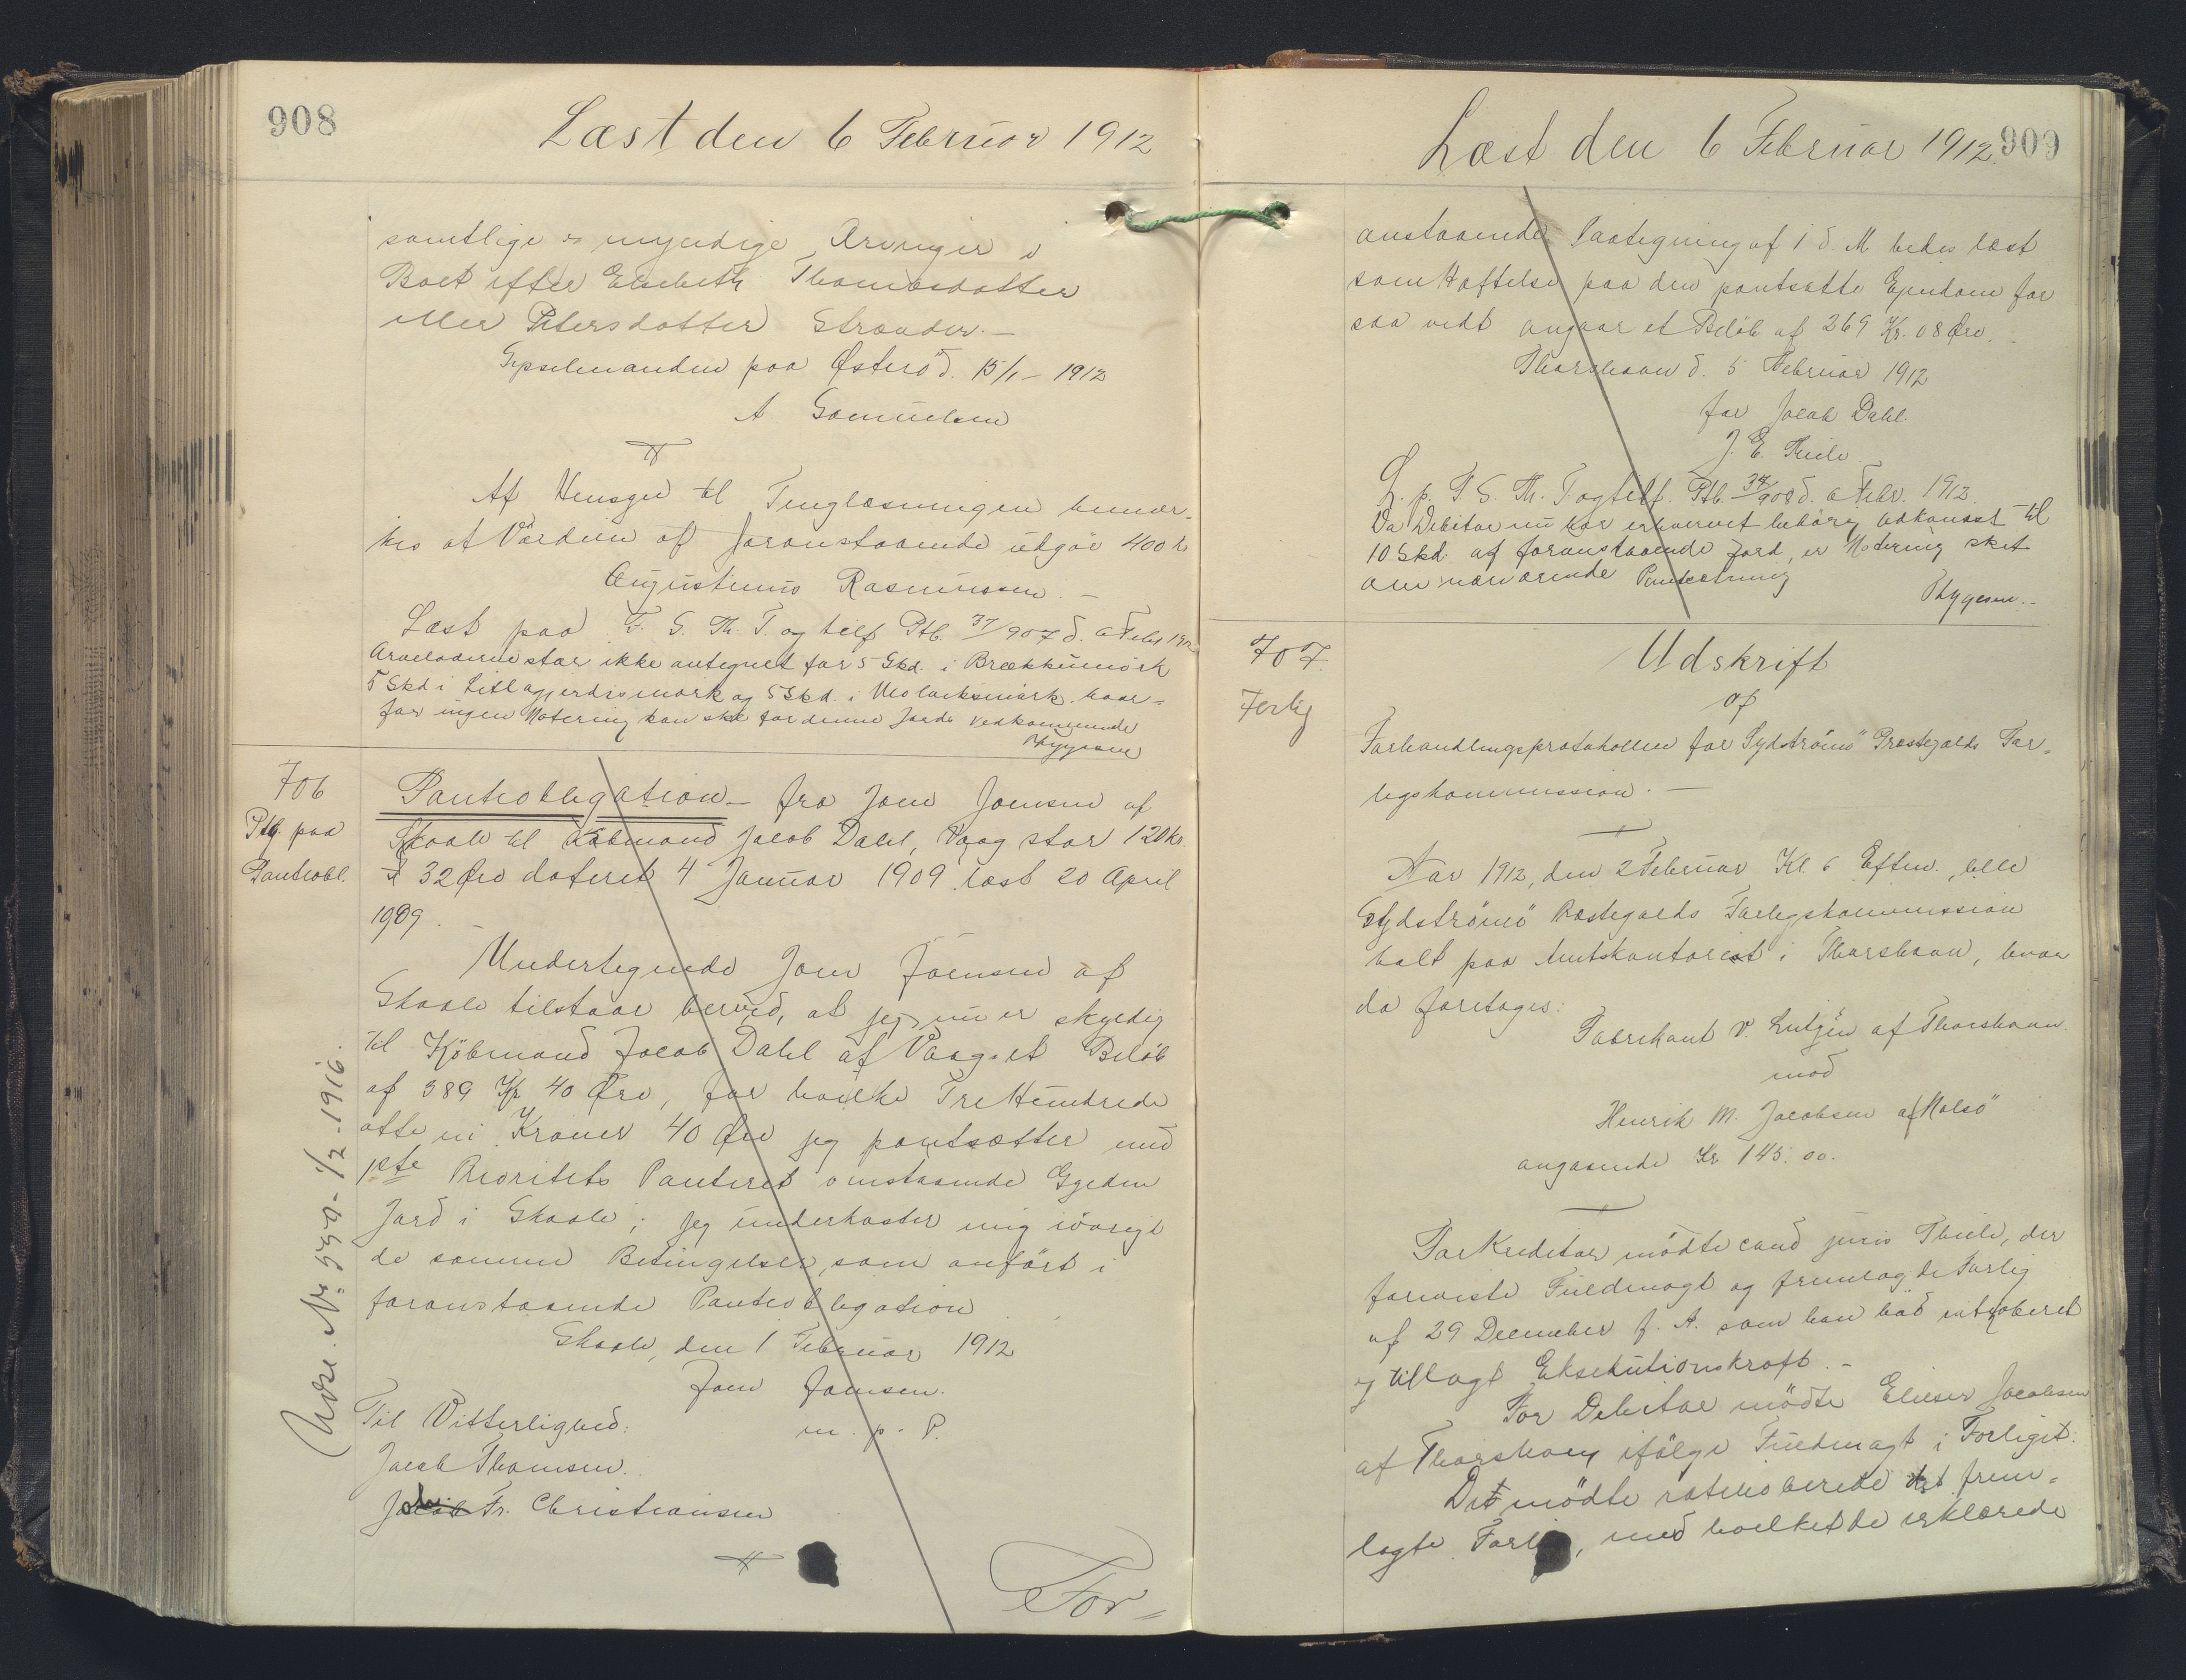 908
Læst den 6 Februar 1912
samtlige og myndige Arvinger i
Boet efter Elsebeth Thomasdatter
eller Petersdatter Strænder. —
Sysselmanden paa Österö d. 15/1 – 1912
A. Samuelsen
Af Hensyn til Tinglæsningen bemær-
kes at Værdien af foranstaaende udgör 400 kr
Augustinus Rasmussen. —
Læst paa F. S. Th. T. og tilf Ptb. 37/907 d. 6 Febr 1912
Arveladerne staar ikke antegnet for 5 Skd. i
5 Skd i og 5 Skd. i hvor-
for ingen Notering kan ske for denne Jords Vedkommende
Thygesen
706
Ptg. paa
Panteobl.
Panteobligation — fra Joen Joensen af
Skaale til Købmand Jacob Dahl, Vaag stor 120 kr.
& 32 Øre dateret 4 Januar 1909 læst 20 April
1909.
Undertegnede Joen Joensen af
Skaale tilstaar herved, at jeg nu er skyldig
til Köbmand Jacob Dahl af Vaag et Belöb
af 389 Kr 40 Øre, for hvilke Tre Hundrede
otte ni Kroner 40 Øre jeg pantsætter med
1ste Prioritets Panteret omstaaende Gyeden
Jord i Skaale; jeg underkaster mig iövrigt
de samme Betingelser, som anfört i
foranstaaende Panteobligation
Skaale, den 1 Februar 1912
Joen Joensen.
m. p. P.
Til Vitterlighed:
Jacob Thomsen.
Fr. Christiansen
Udsl. No. 559 - 1/2 - 1916.
For-
909
Læst den 6 Februar 1912.
anstaaende Paategning af 1 d. M bedes læst
som Hæftelse paa den pantsatte Ejendom for
saa vidt angaar et Belöb af 269 Kr. 08 Øre.
Thorshavn d. 5 Februar 1912
for Jacob Dahl.
J. E. Thiele.
L. p. F. S. Th. T. og tilf. Ptb. 34/908 d. 6 Febr. 1912.
Da Debitor nu har erhvervet behörig Adkomst til
10 Skd. af foranstaaende Jord, er Notering sket
om nærværende Pantsætning
Thygesen. -
707.
Forlig
Udskrift
af
Forhandlingsprotokollen for Sydströmö Præstegælds For-
ligskommission. —
Aar 1912, den 2 Februar Kl. 6 Eftm., blev
Sydströmö Præstegælds Forligskommission
holt paa Amtskontoret i Thorshavn, hvor
da foretoges:
Fabrikant V. Lützen af Thorshavn
mod
Henrik M. Jacobsen af Nolsö
angaaende Kr 145. 00.
For Kreditor mödte cand juris Thiele, der
foreviste Fuldmagt og fremlagde Forlig
af 29 December f. A. som han bad ratihaberet
og tillagt Eksekutionskraft. —
For Debitor mödte Elieser Jacobsen
af Thorshavn ifölge Fuldmagt i Forliget.
De mödte ratihaberede det frem-
lagte Forlig, med hvilket de erklærede